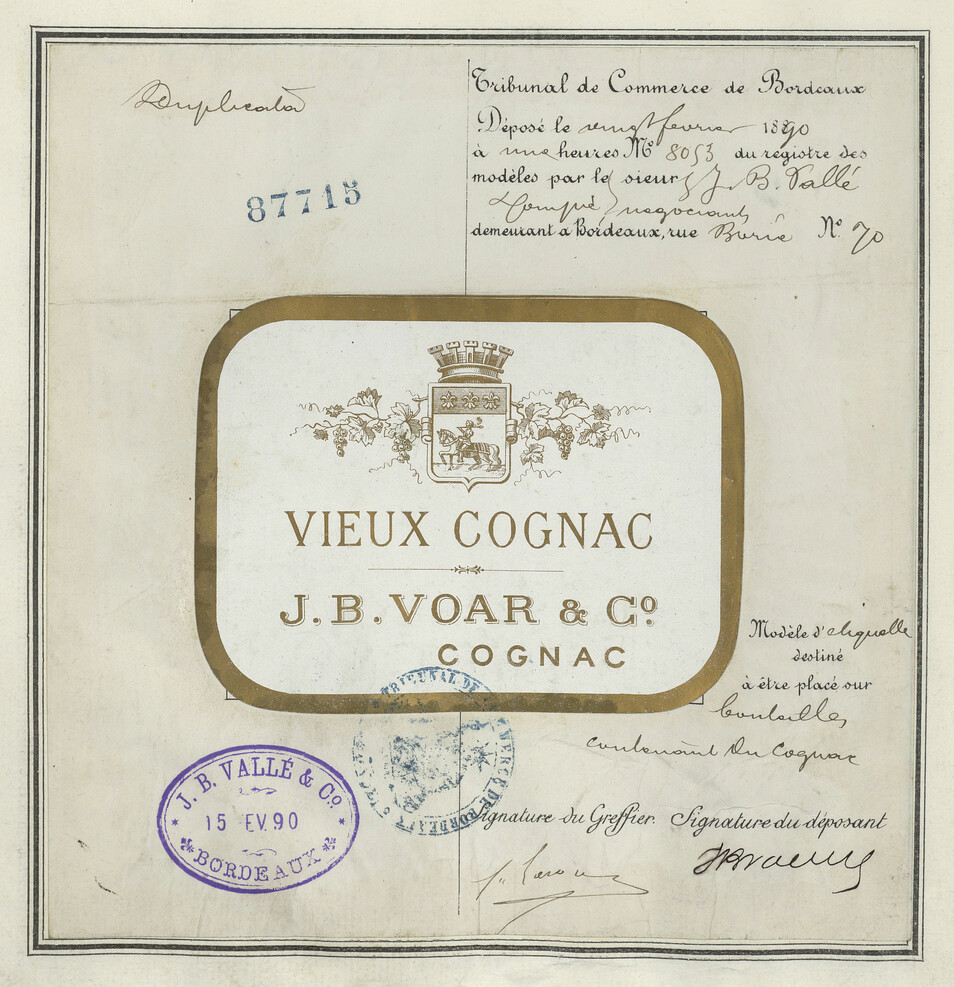 Duplicata
87715
Tribunal de Commerce de Bordeaux
Déposé le vingt fevrier 1890
à une heures N° 8053 du registre des
modèles par le sieur J. B. Vallé
Compie negociants
demeurant à Bordeaux, rue Borie N° 70
VIEUX COGNAC
J. B. VOAR & Cº
COGNAC
Modèle d'etiquette
destiné
à être placé sur
bouteilles
contenant du Cognac
TRIBUNAL DE COMMERCE DE BORDEAUX
J. B. VALLÉ & Cº
15 EV. 90
BORDEAUX
Signature du Greffier. Signature du déposant